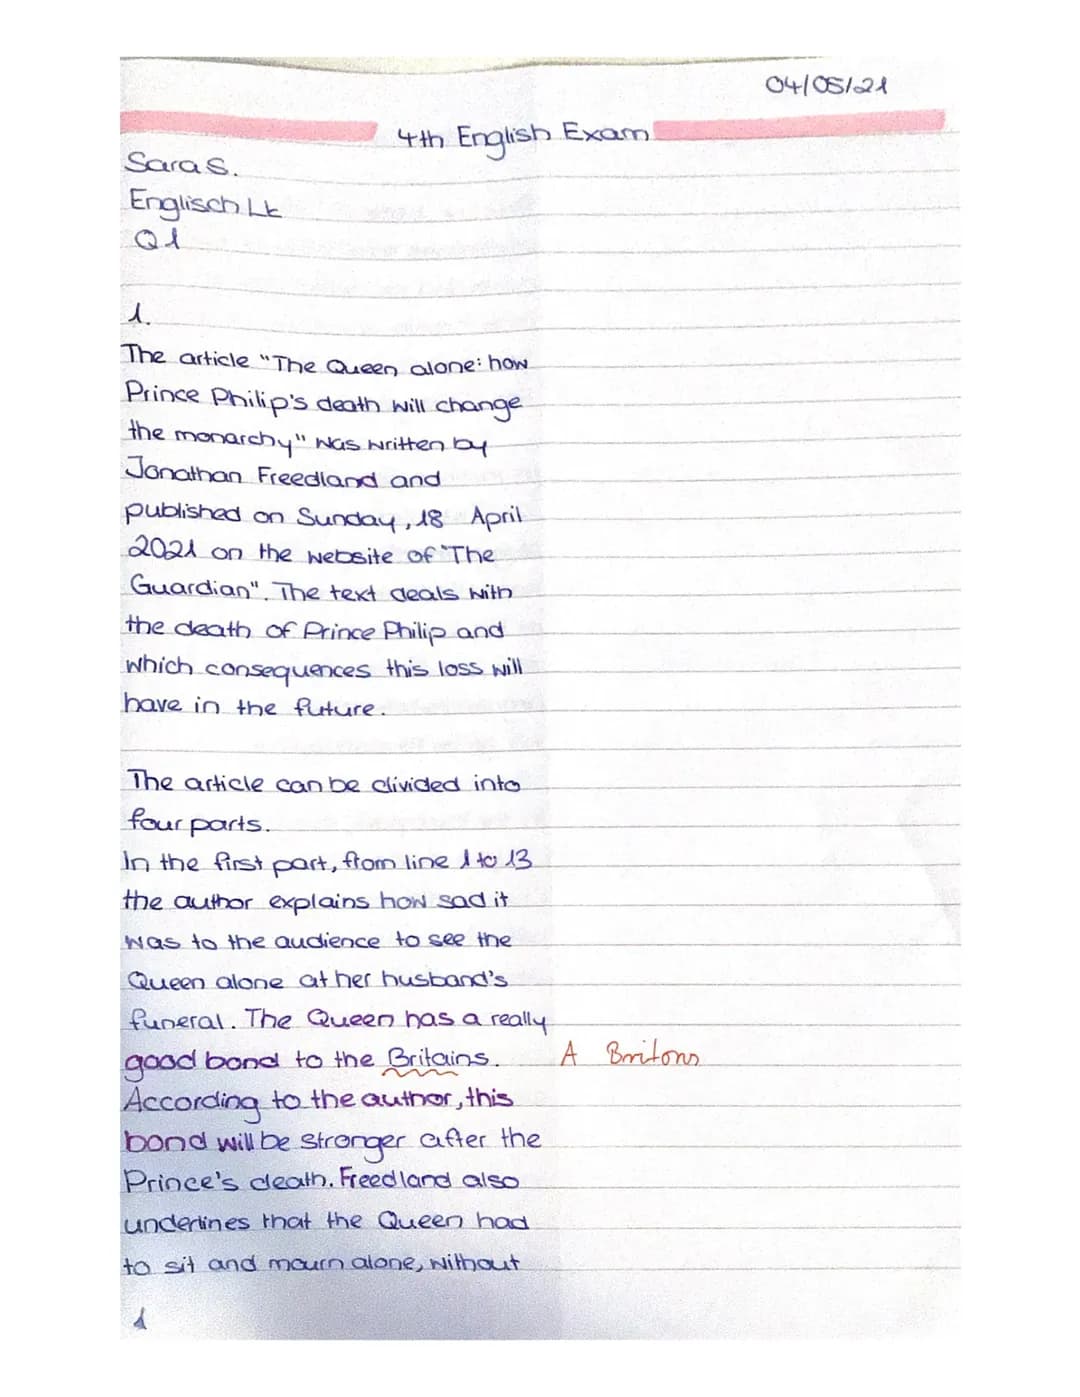 04/05/21
4th English Exam
Sara S.
Englisch Lk
Q1
1.
The article "The Queen alone: how
Prince Philip's death will change
the monarchy" was written by
Jonathan Freedland and
published on Sunday, 18 April
2021 on the website of "The
Guardian". The text deals with
the death of Prince Philip and
which consequences this loss will
have in the future.
The article can be divided into
four parts.
In the first part, from line 1 to 13
the author explains how sad it
was to the audience to see the
Queen alone at her husband's
funeral. The Queen has a really
good bond to the Britains. A Britons
According to the author, this
bond will be stronger after the
Prince's death. Freedland also
underlines that the Queen had
to sit and mourn alone, without
1